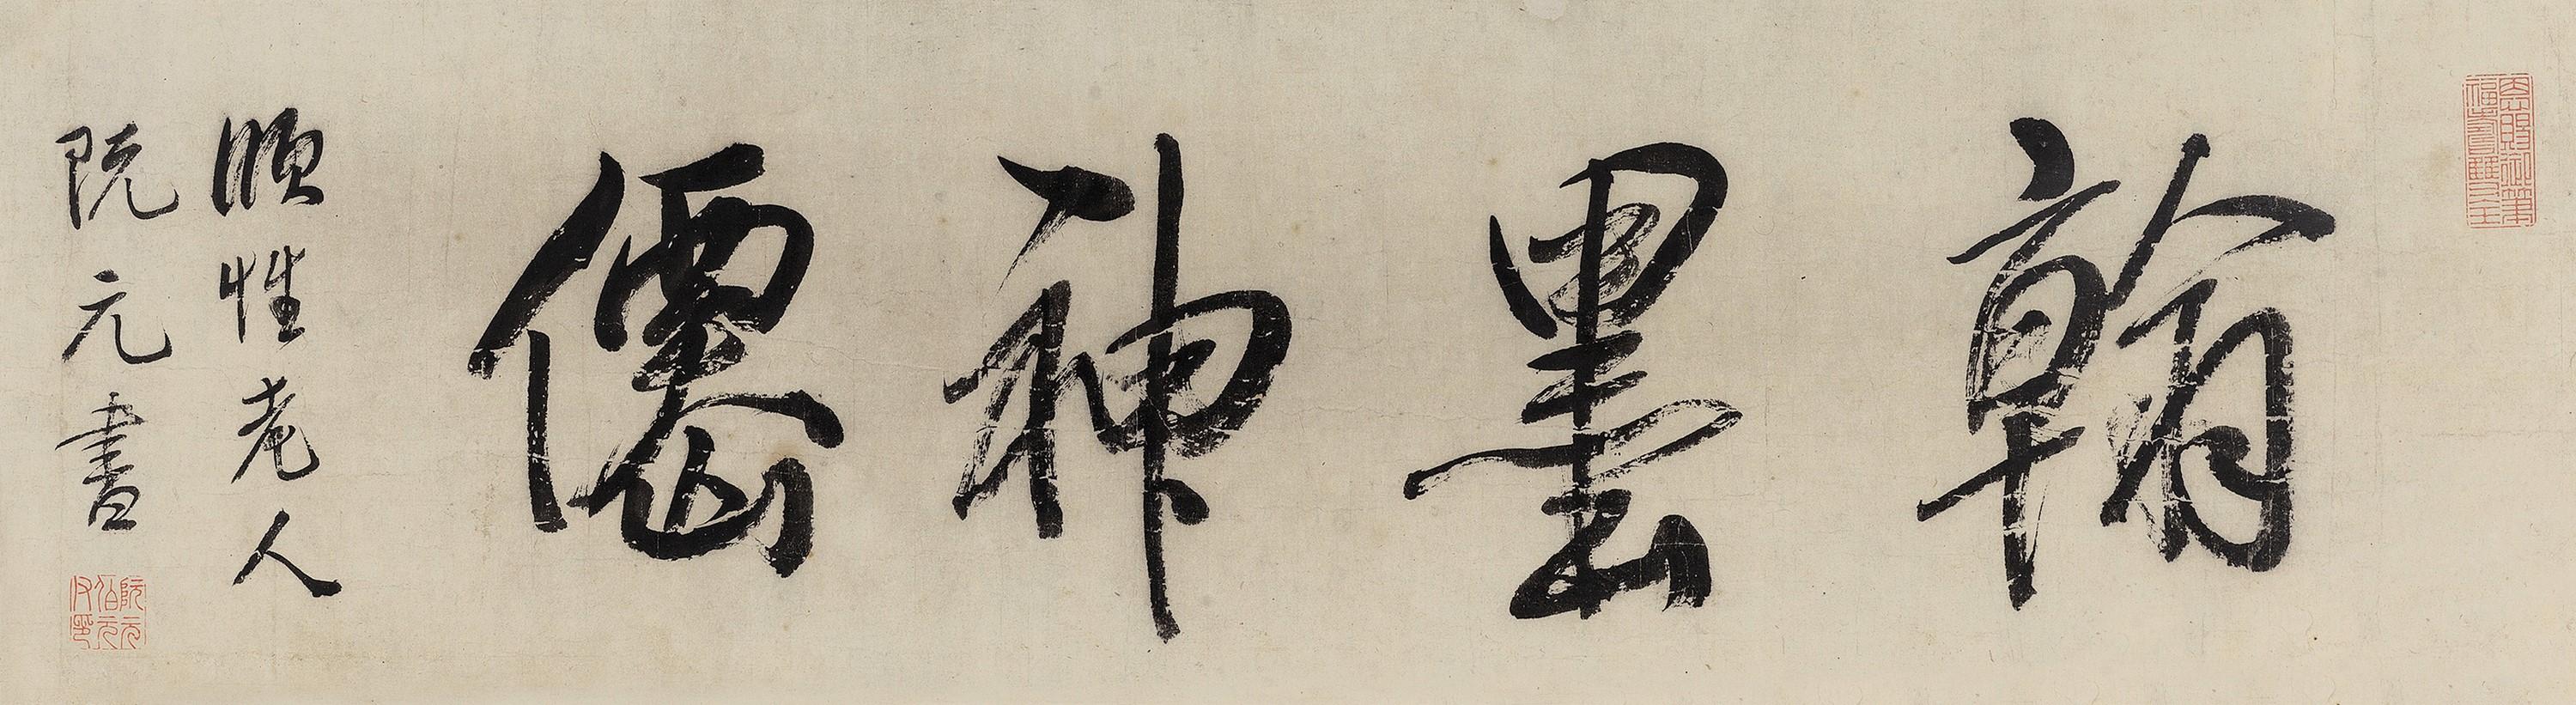 翰墨神僊
頤性老人
阮元書
阮元伯元父印